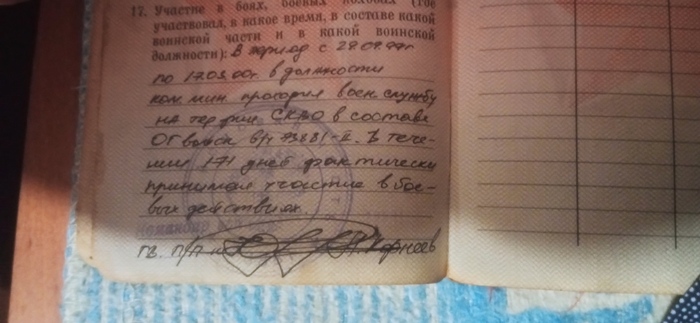 17. Участие в боях, боевых походах (где
участвовал, в какое время, в составе какой
воинской части и в какой воинской
должности): В период с 29.09.99г
по 17.03.00г в должности
ком мин. проходил воен. службу
на тер рии СКВО в составе
ОГ войск в/ч 73881-II. В тече-
нии 171 дней фактически
принимал участие в бое-
вых действиях.
Командир
гв. п/п-к Корнеев